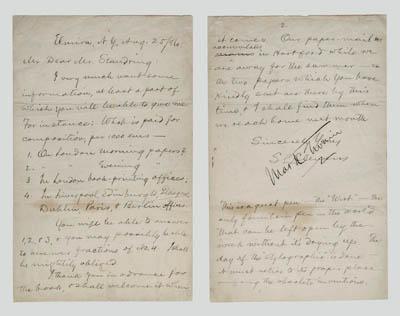 Elmira, N.Y., Aug. 25/86.
My Dear Mr.
I very much want some
information, at least a part of
which you will be able to give me
For instance: What is paid for
composition, per 1000 ems —
1. On London morning papers?
2. — " Evening "
3. In London book-printing offices;
4. In Liverpool, Edinburgh & Glasgow,
Dublin, Paris, & Berlin offices.
You will be able to answer
1, 2, & 3, & you may possibly be able
to answer fractions of No. 4. I shall
be mightily obliged.
I thank you in advance for
the book, & shall welcome it when
2
it comes. Our paper-mail
accumulates in Hartford while we
are away for the summer — so
the two papers which you have
kindly sent are there by this
time, & I shall find them when
we reach home next month
Sincerely Yours
S. L. Clemens
Mark Twain
This is a great pen — the "Wirt" — the
only fountain pen in the world
that can be left open by the
week without its drying up. The
day of the stylographic is done
it must retire to its proper place
among the obsolete inventions.